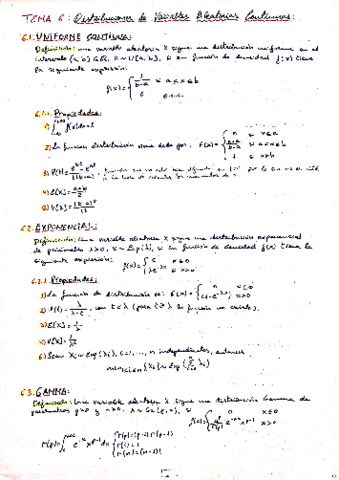 TEMA 6: Distribuciones de Variables Aleatorias Continuas:
6.1. UNIFORME CONTINUA:
Definición: Una variable aleatoria X sigue una distribución uniforme en el
intervalo (a,b) ⊆ ℝ, X ~ U[a,b], si su función de densidad f(x) tiene la
siguiente expresión:
f(x) = { 1/(b-a) si a ≤ x ≤ b
0 e.o.c.
6.1.1. Propiedades:
1) ∫ f(x)dx = 1
2) La función distribución viene dada por: F(x) = { 0 si x ≤ a
(x-a)/(b-a) si a ≤ x ≤ b
1 si x > b
3)
4) E[X] = (a+b)/2
5) V[X] = (b-a)²/12
6.2. EXPONENCIAL:
Definición: Una variable aleatoria X sigue una distribución exponencial
de parámetro λ>0, X ~ Exp(λ), si su función de densidad f(x) tiene la
siguiente expresión: f(x) = { 0 x ≤ 0
λe^-λx x > 0
6.2.1. Propiedades:
1) La función de distribución es: F(x) = { 0 x ≤ 0
1-e^-λx x > 0
2) = λ/(λ-t), con t < λ (para t ≥ λ la función no existe).
3) E[X] = 1/λ
4) V[X] = 1/λ²
5) Sean Xi ~ Exp(λi), i=1,..., n independientes, entonces
min {Xi} ~ Exp(Σ λi)
6.3. GAMMA:
Definición: Una variable aleatoria X sigue una distribución Gamma de
parámetros p>0 y a>0, X ~ Ga(p,a), si f(x) = { 0 x ≤ 0
a^p/Γ(p) e^-ax x^p-1 x > 0
Γ(p) = ∫ e^-x x^p-1 dx { Γ(p) = (p-1) Γ(p-1)
Γ(1) = 1
Γ(n) = (n-1)!